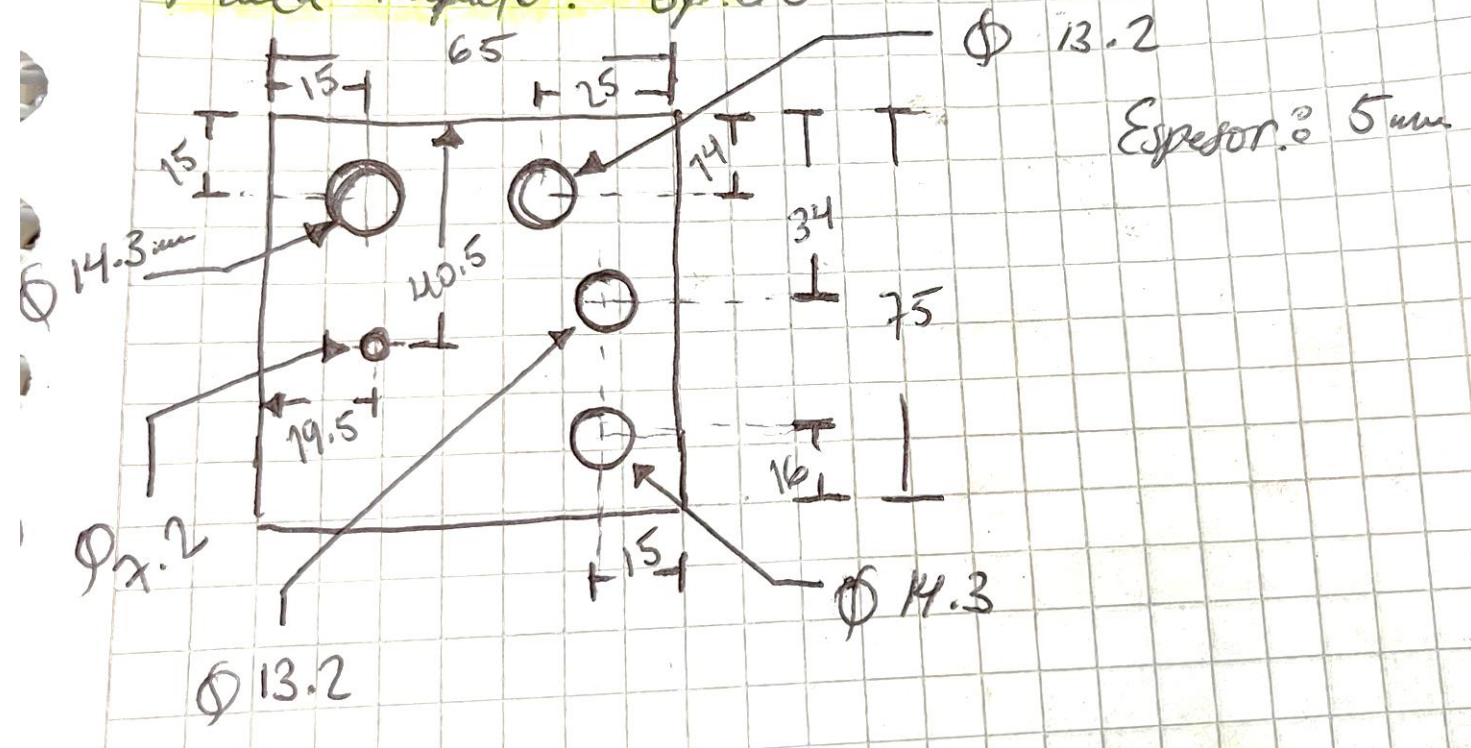 65
Φ 13.2
15
25
Espesor: 5mm
15
14
34
Φ 14.3mm
40.5
75
19.5
16
Φ7.2
15
Φ 14.3
Φ 13.2